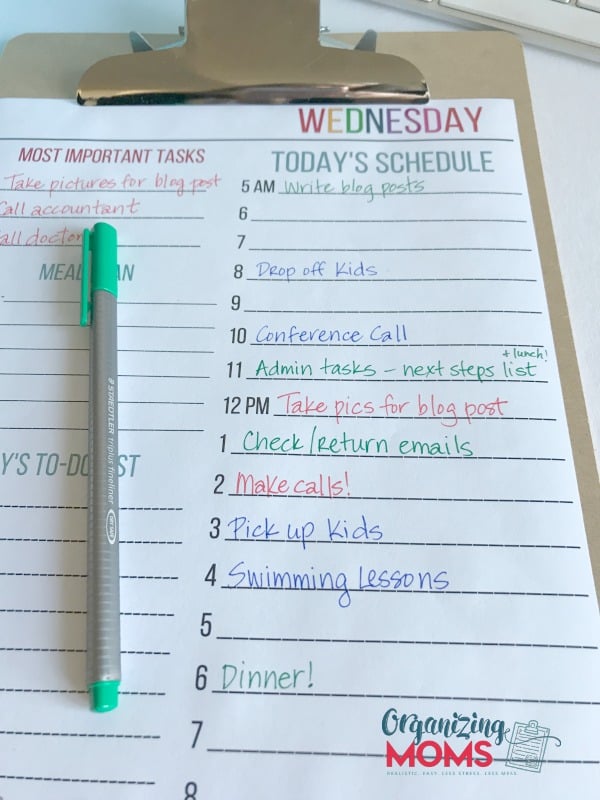 WEDNESDAY
MOST IMPORTANT TASKS
Take pictures for blog post
Call accountant
Call doctor
MEAL
AN
Y'S TO-DO
ST
TODAY'S SCHEDULE
5 AM Write blog posts
6
7
8 Drop off Kids
9
10 Conference Call
+ lunch!
11 Admin tasks - next steps list
12 PM Take pics for blog post
1 Check/Return emails
2 Make calls!
3 Pick up Kids
4 Swimming Lessons
5
6 Dinner!
7
8
STAEDTLER triplus fineliner
Organizing
MOMS
REALISTIC. EASY. LESS STRESS. LESS MESS.